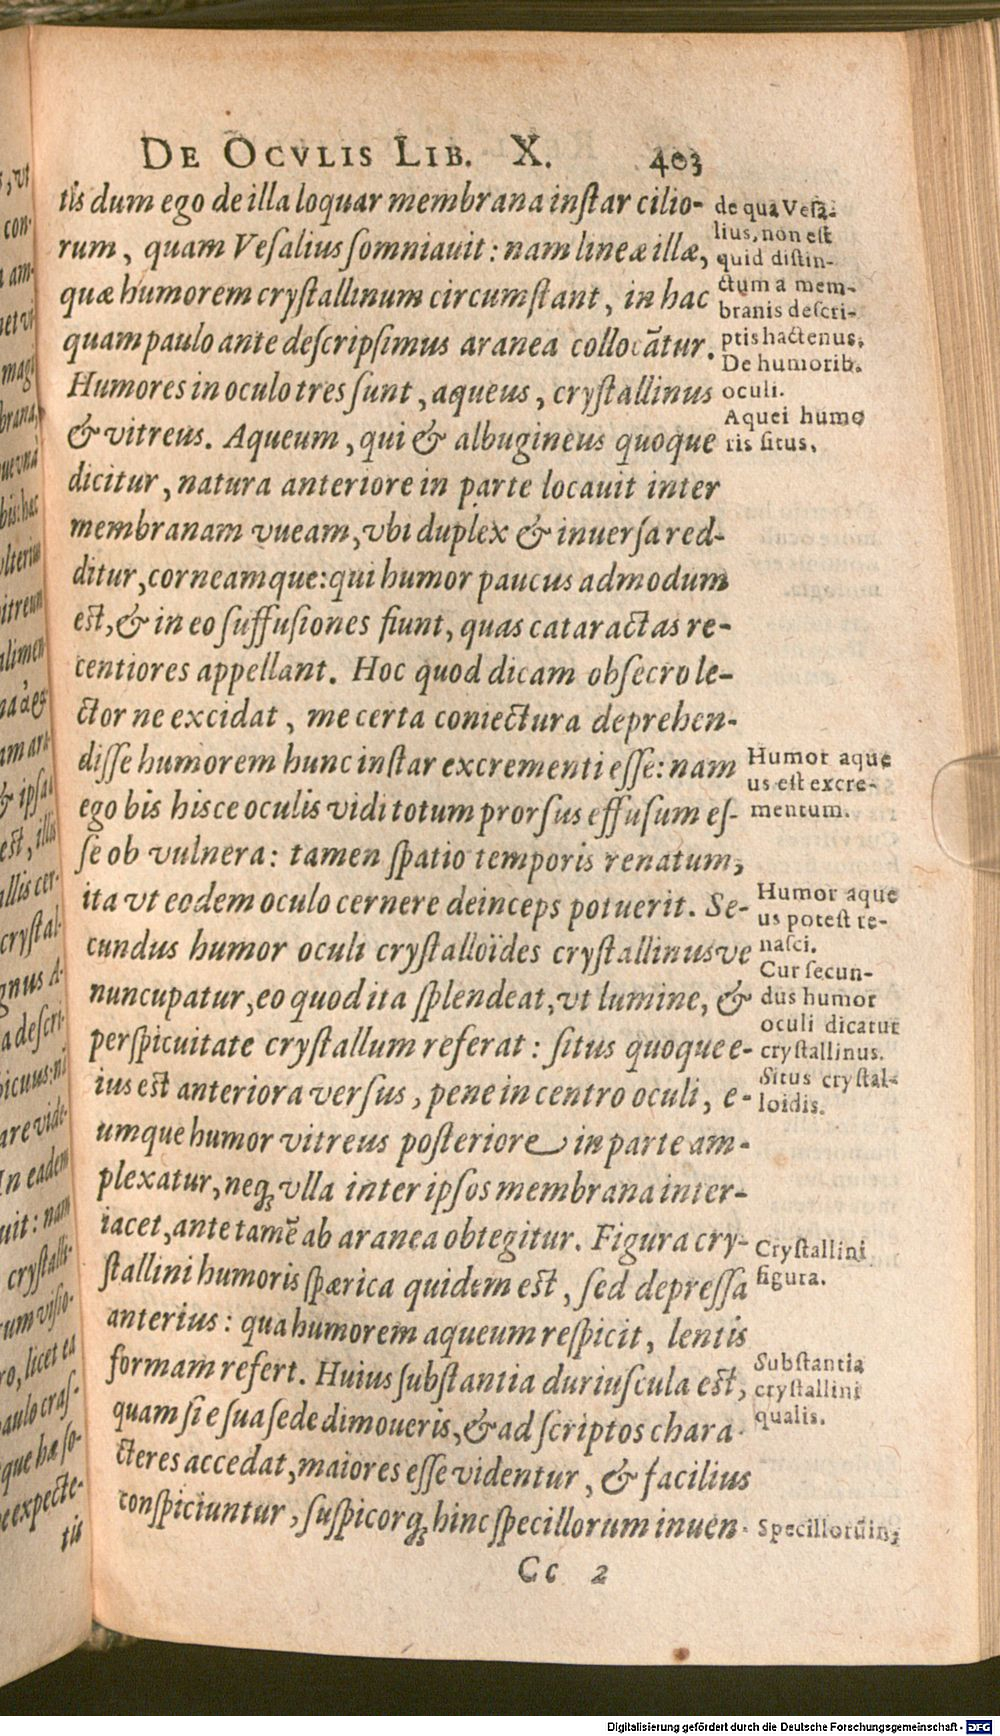 DE OCVLIS LIB. X. 403
tis dum ego de illa loquar membrana instar cilio-
rum, quam Vesalius somniauit: nam lineæ illæ,
quæ humorem crystallinum circumstant, in hac
quam paulo ante descripsimus aranea collocātur.
Humores in oculo tres sunt, aqueus, crystallinus
& vitreus. Aqueum, qui & albugineus quoque
dicitur, natura anteriore in parte locauit inter
membranam vueam, vbi duplex & inuersa red-
ditur, corneamque: qui humor paucus admodum
est, & in eo suffusiones fiunt, quas cataractas re-
centiores appellant. Hoc quod dicam obsecro le-
ctor ne excidat, me certa coniectura deprehen-
disse humorem hunc instar excrementi esse: nam
ego bis hisce oculis vidi totum prorsus effusum es-
se ob vulnera: tamen spatio temporis renatum,
ita vt eodem oculo cernere deinceps potuerit. Se-
cundus humor oculi crystalloïdes crystallinusve
nuncupatur, eo quod ita splendeat, vt lumine, &
perspicuitate crystallum referat: situs quoque e-
ius est anteriora versus, pene in centro oculi, e-
umque humor vitreus posteriore in parte am-
plexatur, neq; vlla inter ipsos membrana inter-
iacet, ante tamē ab aranea obtegitur. Figura cry-
stallini humoris spærica quidem est, sed depressa
anterius: qua humorem aqueum respicit, lentis
formam refert. Huius substantia duriuscula est,
quam si e sua sede dimoueris, & ad scriptos chara-
cteres accedat, maiores esse videntur, & facilius
conspiciuntur, suspicorq; hinc specillorum inuen-
Cc 2
de qua Vesa-
lius, non est
quid distin-
ctum a mem-
branis descri-
ptis hactenus.
De humorib.
oculi.
Aquei humo
ris situs.
Humor aque
us est excre-
mentum.
Humor aque
us potest re-
nasci.
Cur secun-
dus humor
oculi dicatur
crystallinus.
Situs crystal-
loidis.
Crystallini
figura.
Substantia
crystallini
qualis.
Specillorū in-
Digitalisierung gefördert durch die Deutsche Forschungsgemeinschaft - DFG